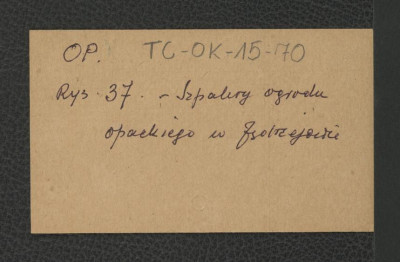 OP. TC-OK-15-70
Rys. 37. - Szpalery ogrodu
opackiego w Jędrzejowie